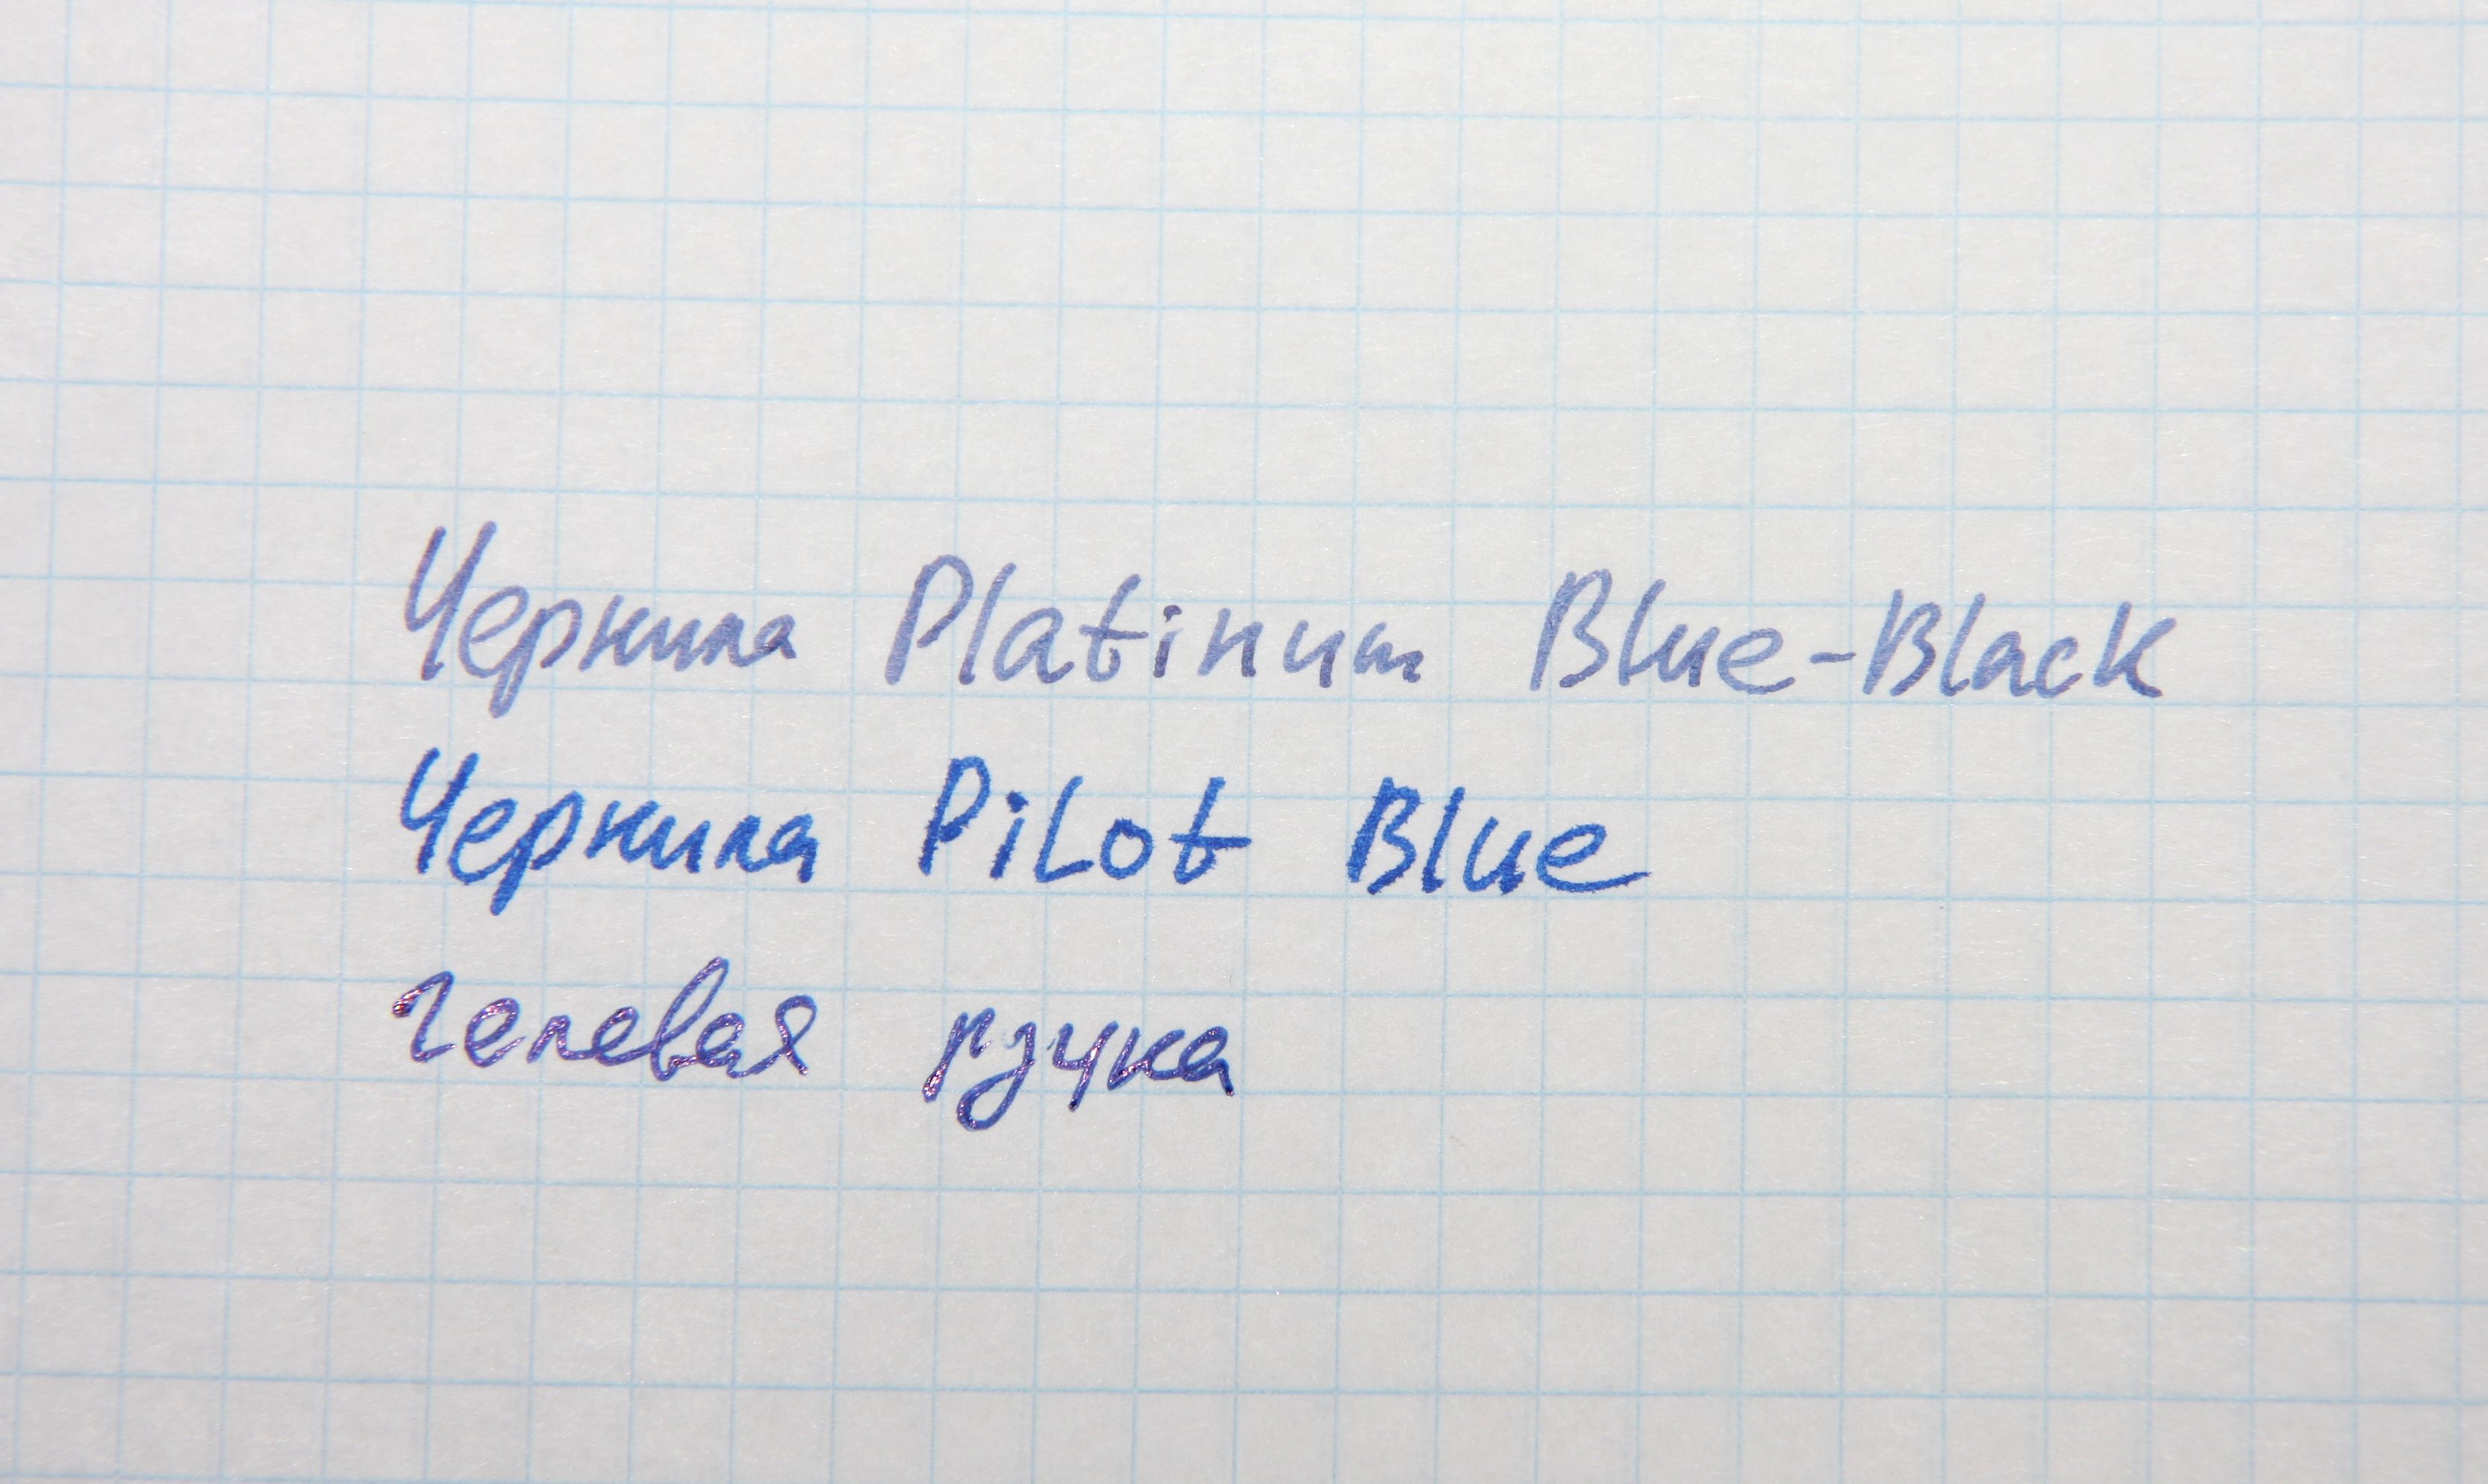 Чернила Platinum Blue-Black
Чернила Pilot Blue
гелевая ручка